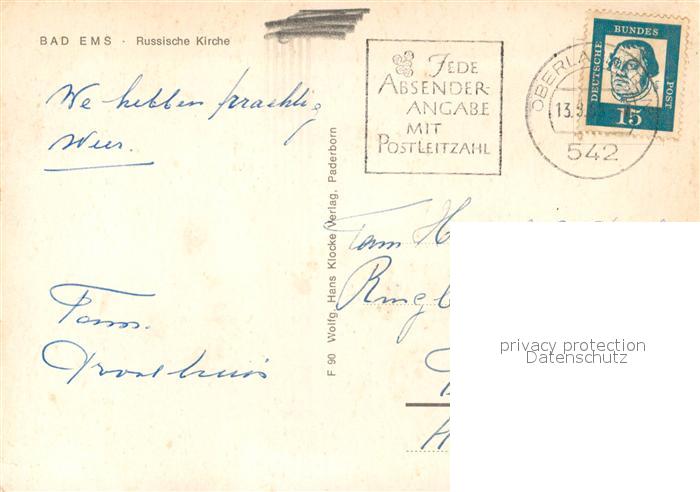 BAD EMS · Russische Kirche
We hebben prachtig
weer.
Fam.
F 90 Wolfg. Hans Klocke Verlag, Paderborn
JEDE
ABSENDER-
ANGABE
MIT
POSTLEITZAHL
OBERLA
13.9
542
DEUTSCHE
BUNDES
POST
15
Fam H
privacy protection
Datenschutz